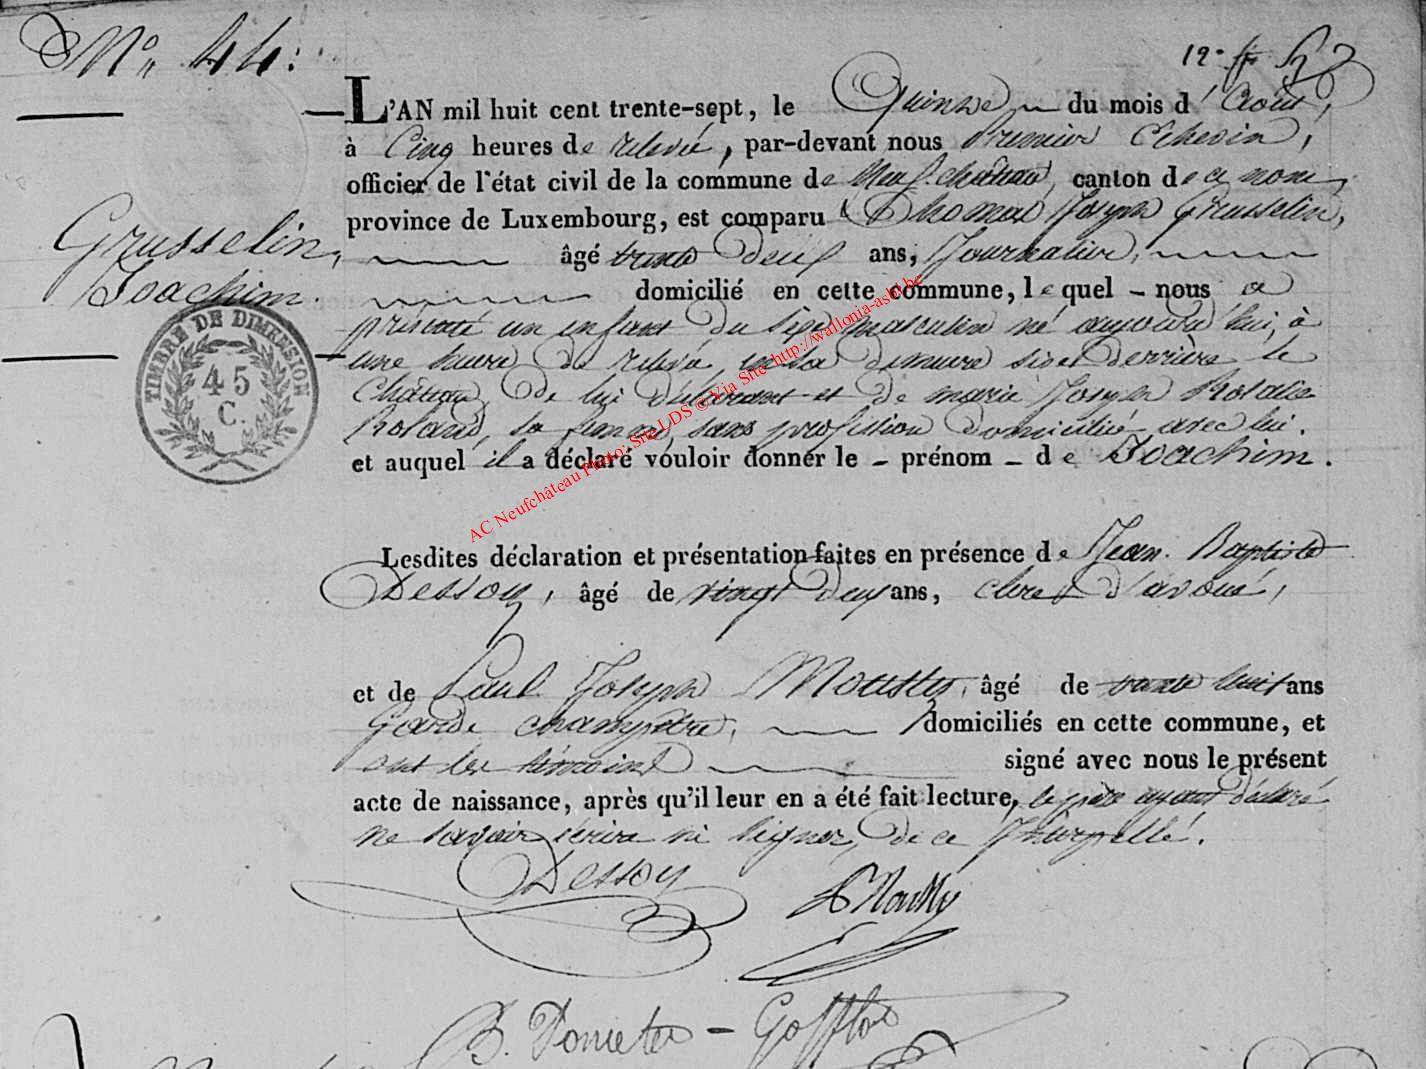 N° 44.
L'AN mil huit cent trente-sept, le Quinze du mois d'Août,
à Cinq heures de relevée, par-devant nous Premier Echevin,
officier de l'état civil de la commune de Neufchateau, canton de ce nom,
province de Luxembourg, est comparu Thomas Joseph Grusselin,
Grusselin,
Joachim.
âgé trente deux ans, Journalier,
domicilié en cette commune, lequel nous a
présenté un enfant du sexe masculin né aujourd'hui, à
une heure de relevée en la demeure sise derrière le
Château, de lui déclarant et de marie Joseph Rosalie
Roland, sa femme, sans profession domiciliée avec lui.
et auquel il a déclaré vouloir donner le - prénom - de Joachim.
TIMBRE DE DIMENSION
45
C.
AC Neufchâteau Photo: Site LDS © Via Site http://wallonia-asbl.be
Lesdites déclaration et présentation faites en présence de Jean Baptiste
Dessoy, âgé de vingt deux ans, clerc d'avoué,
et de Paul Joseph Mousty, âgé de trente huit ans
Garde champêtre, domiciliés en cette commune, et
ont les témoins signé avec nous le présent
acte de naissance, après qu'il leur en a été fait lecture, le père ayant déclaré
ne savoir écrire ni signer, de ce Interpellé.
Dessoy
Mousty